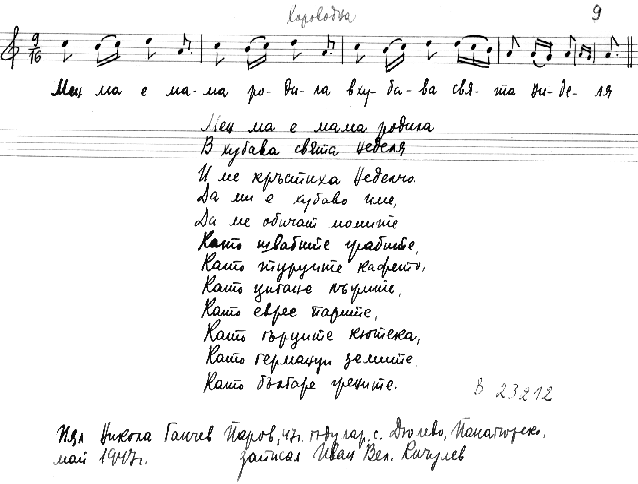 Хороводна
9
9
16
Мен ма е ма-ма ро-ди-ла в ху-ба-ва свя-та ни-де-ля
Мен ма е мама родила
В хубава свята неделя
И ме кръстиха Неделчо.
Да ми е хубаво име,
Да ме обичат момите
Като швабите грабите,
Като турците кафето,
Като цигане кърмите,
Като еврее парите,
Като гърците кютека,
Като германци земите
Като българе гречите.
В 23212
Изп Никола Ганчев Паров, 47г. с. Дюлево, Панагюрско,
май 19 г. записал Иван Вел. Качулев